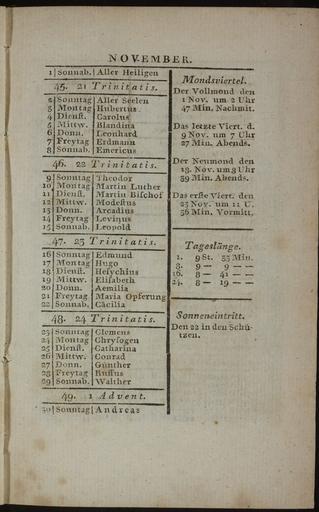 NOVEMBER.
1 Sonnab. Aller Heiligen
45. 21 Trinitatis.
2 Sonntag Aller Seelen
3 Montag Hubertus
4 Dienst. Carolus
5 Mittw. Blandina
6 Donn. Leonhard
7 Freytag Erdmann
8 Sonnab. Emericus
46. 22 Trinitatis.
9 Sonntag Theodor
10 Montag Martin Luther
11 Dienst. Martin Bischof
12 Mittw. Modestus
13 Donn. Arcadius
14 Freytag Levinus
15 Sonnab. Leopold
47. 23 Trinitatis.
16 Sonntag Edmund
17 Montag Hugo
18 Dienst. Hesychius
19 Mittw. Elisabeth
20 Donn. Aemilia
21 Freytag Maria Opferung
22 Sonnab. Cäcilia
48. 24 Trinitatis.
23 Sonntag Clemens
24 Montag Chrysogen
25 Dienst. Catharina
26 Mittw. Conrad
27 Donn. Günther
28 Freytag Ruffus
29 Sonnab. Walther
49. 1 Advent.
30 Sonntag Andreas
Mondsviertel.
Der Vollmond den
1 Nov. um 2 Uhr
47 Min. Nachmit.
Das letzte Viert. d.
9 Nov. um 7 Uhr
27 Min. Abends.
Der Neumond den
18. Nov. um 3 Uhr
39 Min. Abends.
Das erste Viert. den
25 Nov. um 11 U.
56 Min. Vormitt.
Tageslänge.
1. 9 St. 35 Min.
8. 9 — 9 — —
16. 8 — 41 — —
24. 8 — 19 — —
Sonneneintritt.
Den 22 in den Schü-
tzen.